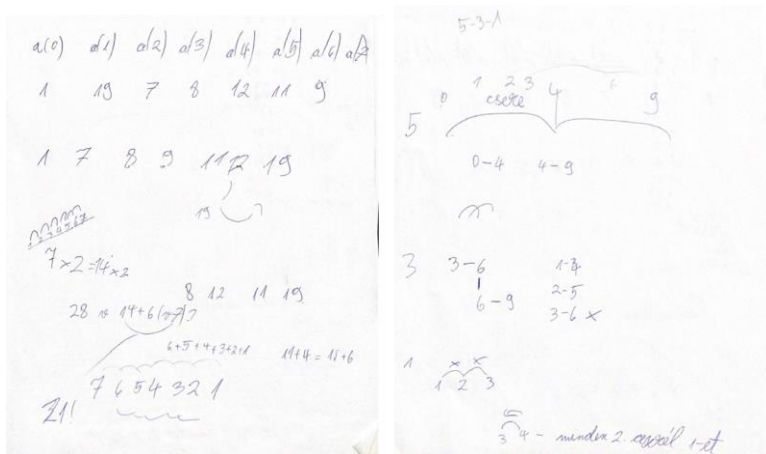 a(0) a(1) a(2) a(3) a(4) a(5) a(6) a(7)
1 19 7 8 12 11 9
1 7 8 9 11 12 19
19
7×2=14×2
8 12 11 19
14+6
6+5+4+3+2+1
11+4=15+6
7 6 5 4 3 2 1
21!
5-3-1
0 1 2 3 4 6 9
csere
5
0-4 4-9
3 3-6 1-4
6-9 2-5
3-6 x
1 x x
1 2 3
3 4 - minden 2. 1-et